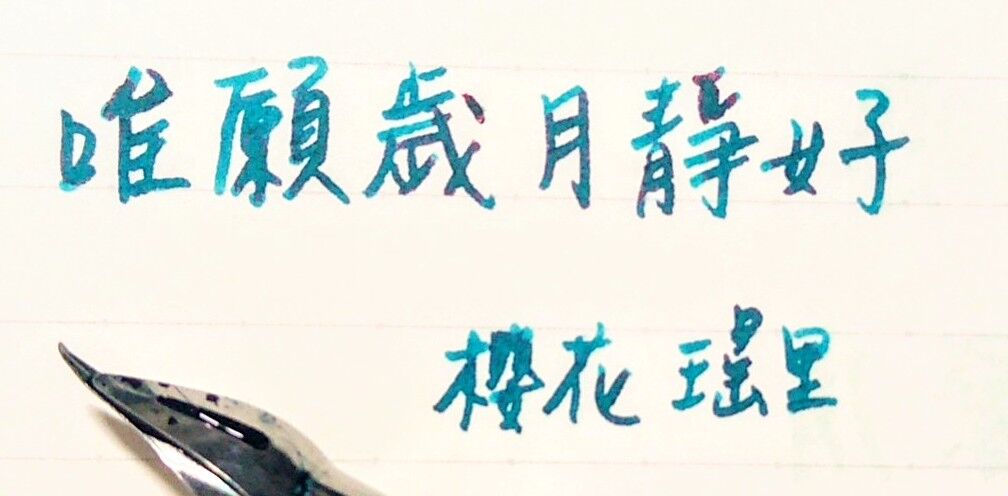 唯願歲月靜好
櫻花瑶里